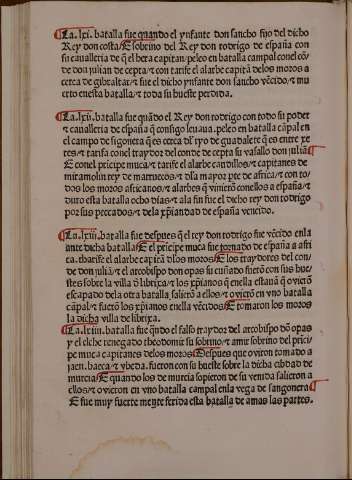 ¶La .lxi. batalla fue quando el ynfante don sancho fijo del dicho
Rey don costa/ E sobrino del Rey don rodrigo de españa con
su caualleria de q̃ el hera capitan peleo en batalla campal conel cõ
de don julian de cepta/ ⁊ con tarife el alarbe capitã delos moros a
cerca de gibraltar/ ⁊ fue el dicho ynfante don sancho vẽcido/ ⁊ mu
erto enesta batalla/ ⁊ toda su hueste perdida.
¶La .lxii. batalla fue quãdo el Rey don rodrigo con todo su poder
⁊ caualleria de españa q̃ consigo leuaua. peleo en batalla cãpal en
el campo de sigonera q̃ es cerca dl̃ ryo de guadalete q̃ es entre xe
res ⁊ tarifa conel traydor del conde de cepta su vasallo don juliã
E conel prĩcipe muça/ ⁊ tarife el alarbe caudillos/ ⁊ capitanes de
miramolin rey de marruecos/ ⁊ dl̃a mayor pte de africa/ ⁊ con to
dos los moros africanos/ ⁊ alarbes q̃ vinierõ conellos a españa/ ⁊
duro esta batalla ocho dias/ ⁊ ala fin fue el dicho rey don rodrigo
por sus peccados/ ⁊ dela xp̃iandad de españa vencido.
¶La .lxiii. batalla fue despues q̃ el rey don rodrigo fue vẽcido enla
ante dicha batalla/ E el prĩcipe muça fue tornado de españa a afri
ca. ⁊ tarife el alarbe capitã dl̃os moros/ E los traydores del con
de don juliã/ ⁊ el arçobispo don opas su cuñado fuerõ con sus hue
stes sobre la villa d̃ librixa/ ⁊ los xp̃ianos q̃ enella estauã q̃ auiẽ
escapado dela otra batalla, salierõ a ellos/ ⁊ ovierõ en vno batalla
cãpal/ ⁊ fuerõ los xp̃ianos enella vẽcidos/ E tomaron los moros
la dicha villa de librixa.
¶La .lxiiii. batalla fue q̃ndo el falso traydor del arçobispo dõ opas
y el elche renegado theodomir su sobrino/ ⁊ amir sobrino del prĩci
pe muça capitanes delos moros/ Despues que oviron tomado a
jaen. baeça ⁊ vbeda. fueron con su hueste sobre la dicha cibdad de
murcia/ E quando los de murcia sopieron de su venida salieron a
ellos/ ⁊ ovieron en vno batalla campal enla vega de sangonera
E fue muy fuerte mente ferida esta batalla de amas las partes.